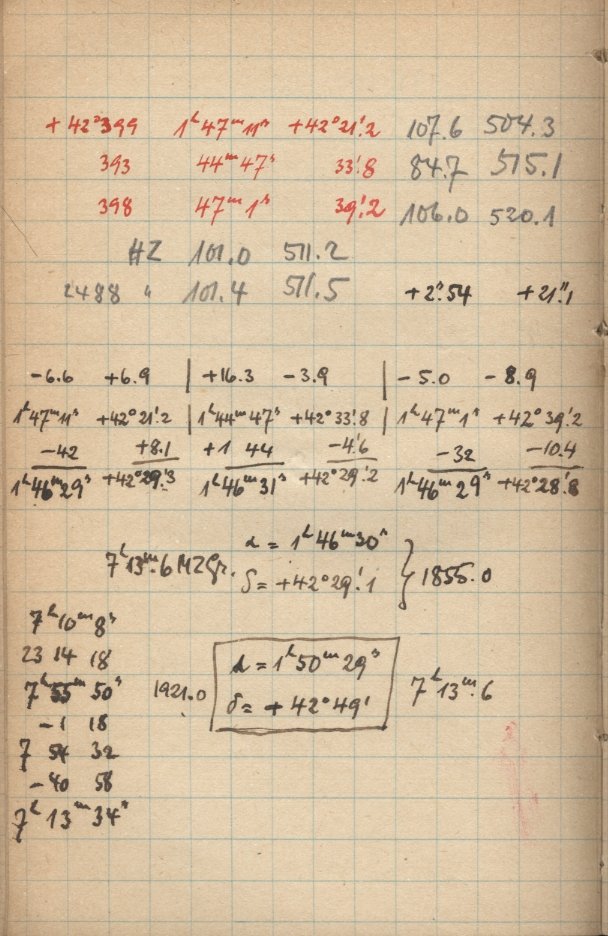 +42°399 1ʰ47ᵐ11ˢ +42°21!2 107.6 504.3
393 44ᵐ47ˢ 33!8 84.7 515.1
398 47ᵐ1ˢ 39!2 106.0 520.1
HZ 101.0 511.2
2488 " 101.4 511.5 +2ˢ.54 +21".1
-6.6 +6.9 | +16.3 -3.9 | -5.0 -8.9
1ʰ47ᵐ11ˢ +42°21!2 | 1ʰ44ᵐ47ˢ +42°33!8 | 1ʰ47ᵐ1ˢ +42°39!2
-42 +8.1 +1 44 -4!6 -32 -10.4
1ʰ46ᵐ29ˢ +42°29!3 1ʰ46ᵐ31ˢ +42°29!2 1ʰ46ᵐ29ˢ +42°28!8
7ʰ13ᵐ.6 MZGr. α = 1ʰ46ᵐ30ˢ
δ = +42°29!1 } 1855.0
7ʰ10ᵐ8ˢ
23 14 18
7ʰ55ᵐ50ˢ 1921.0 α = 1ʰ50ᵐ29ˢ 7ʰ13ᵐ.6
-1 18 δ = +42°49'
7 54 32
-40 58
7ʰ13ᵐ34ˢ